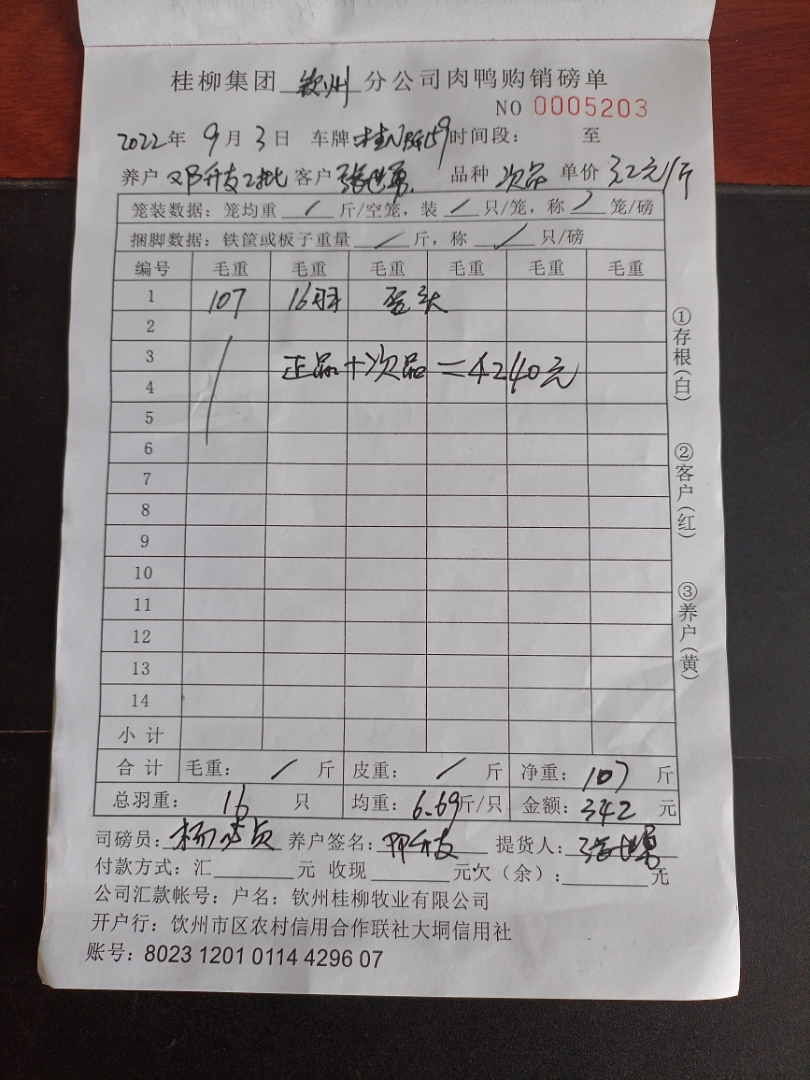 桂柳集团 钦州 分公司肉鸭购销磅单
NO 0005203
2022年 9月 3日 车牌 时间段： 至
养户 邓升友2批 客户 张世勇 品种 次品 单价 3.2元/斤
笼装数据：笼均重 / 斤/空笼，装 / 只/笼，称 / 笼/磅
捆脚数据：铁筐或板子重量 / 斤，称 / 只/磅
编号 毛重 毛重 毛重 毛重 毛重 毛重
1 107 16羽
2
3 正品+次品=4240元
4
5
6
7
8
9
10
11
12
13
14
小计
合计 毛重： / 斤 皮重： / 斤 净重： 107 斤
总羽重： 16 只 均重： 6.69斤/只 金额： 342 元
司磅员： 养户签名： 邓升友 提货人： 张世勇
付款方式：汇 元 收现 元欠（余）： 元
公司汇款帐号：户名：钦州桂柳牧业有限公司
开户行：钦州市区农村信用合作联社大垌信用社
账号：8023 1201 0114 4296 07
①存根(白)
②客户(红)
③养户(黄)